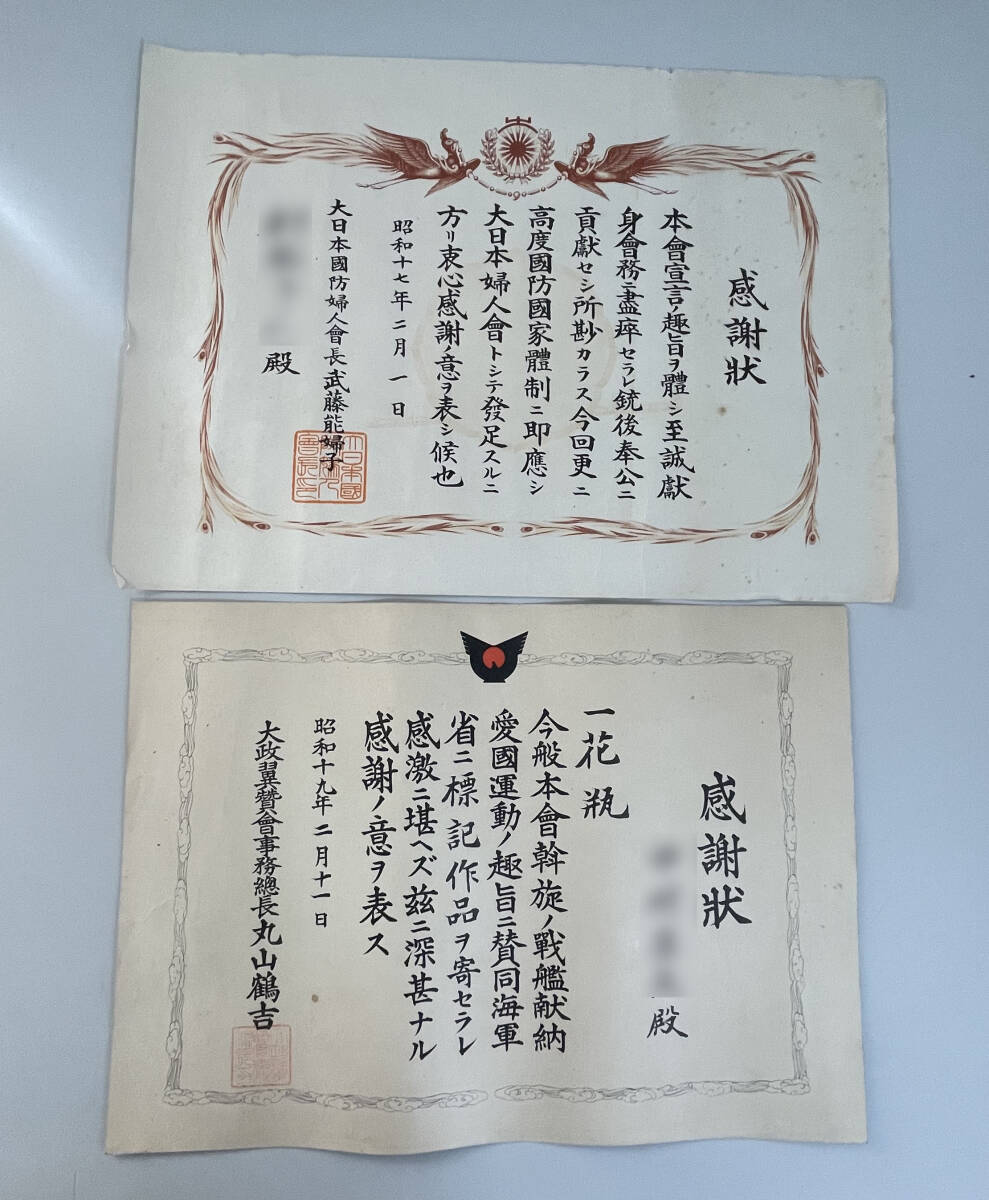 感謝狀
本會宣言ノ趣旨ヲ體シ至誠獻
身會務ニ盡瘁セラレ銃後奉公ニ
貢獻セシ所尠カラス今回更ニ
高度國防國家體制ニ即應シ
大日本婦人會トシテ發足スルニ
方リ衷心感謝ノ意ヲ表シ候也
昭和十七年二月一日
大日本國防婦人會長武藤能婦子
殿
感謝狀
殿
一花瓶
今般本會斡旋ノ戰艦献納
愛國運動ノ趣旨ニ賛同海軍
省ニ標記作品ヲ寄セラレ
感激ニ堪ヘズ玆ニ深甚ナル
感謝ノ意ヲ表ス
昭和十九年二月十一日
大政翼贊會事務總長丸山鶴吉